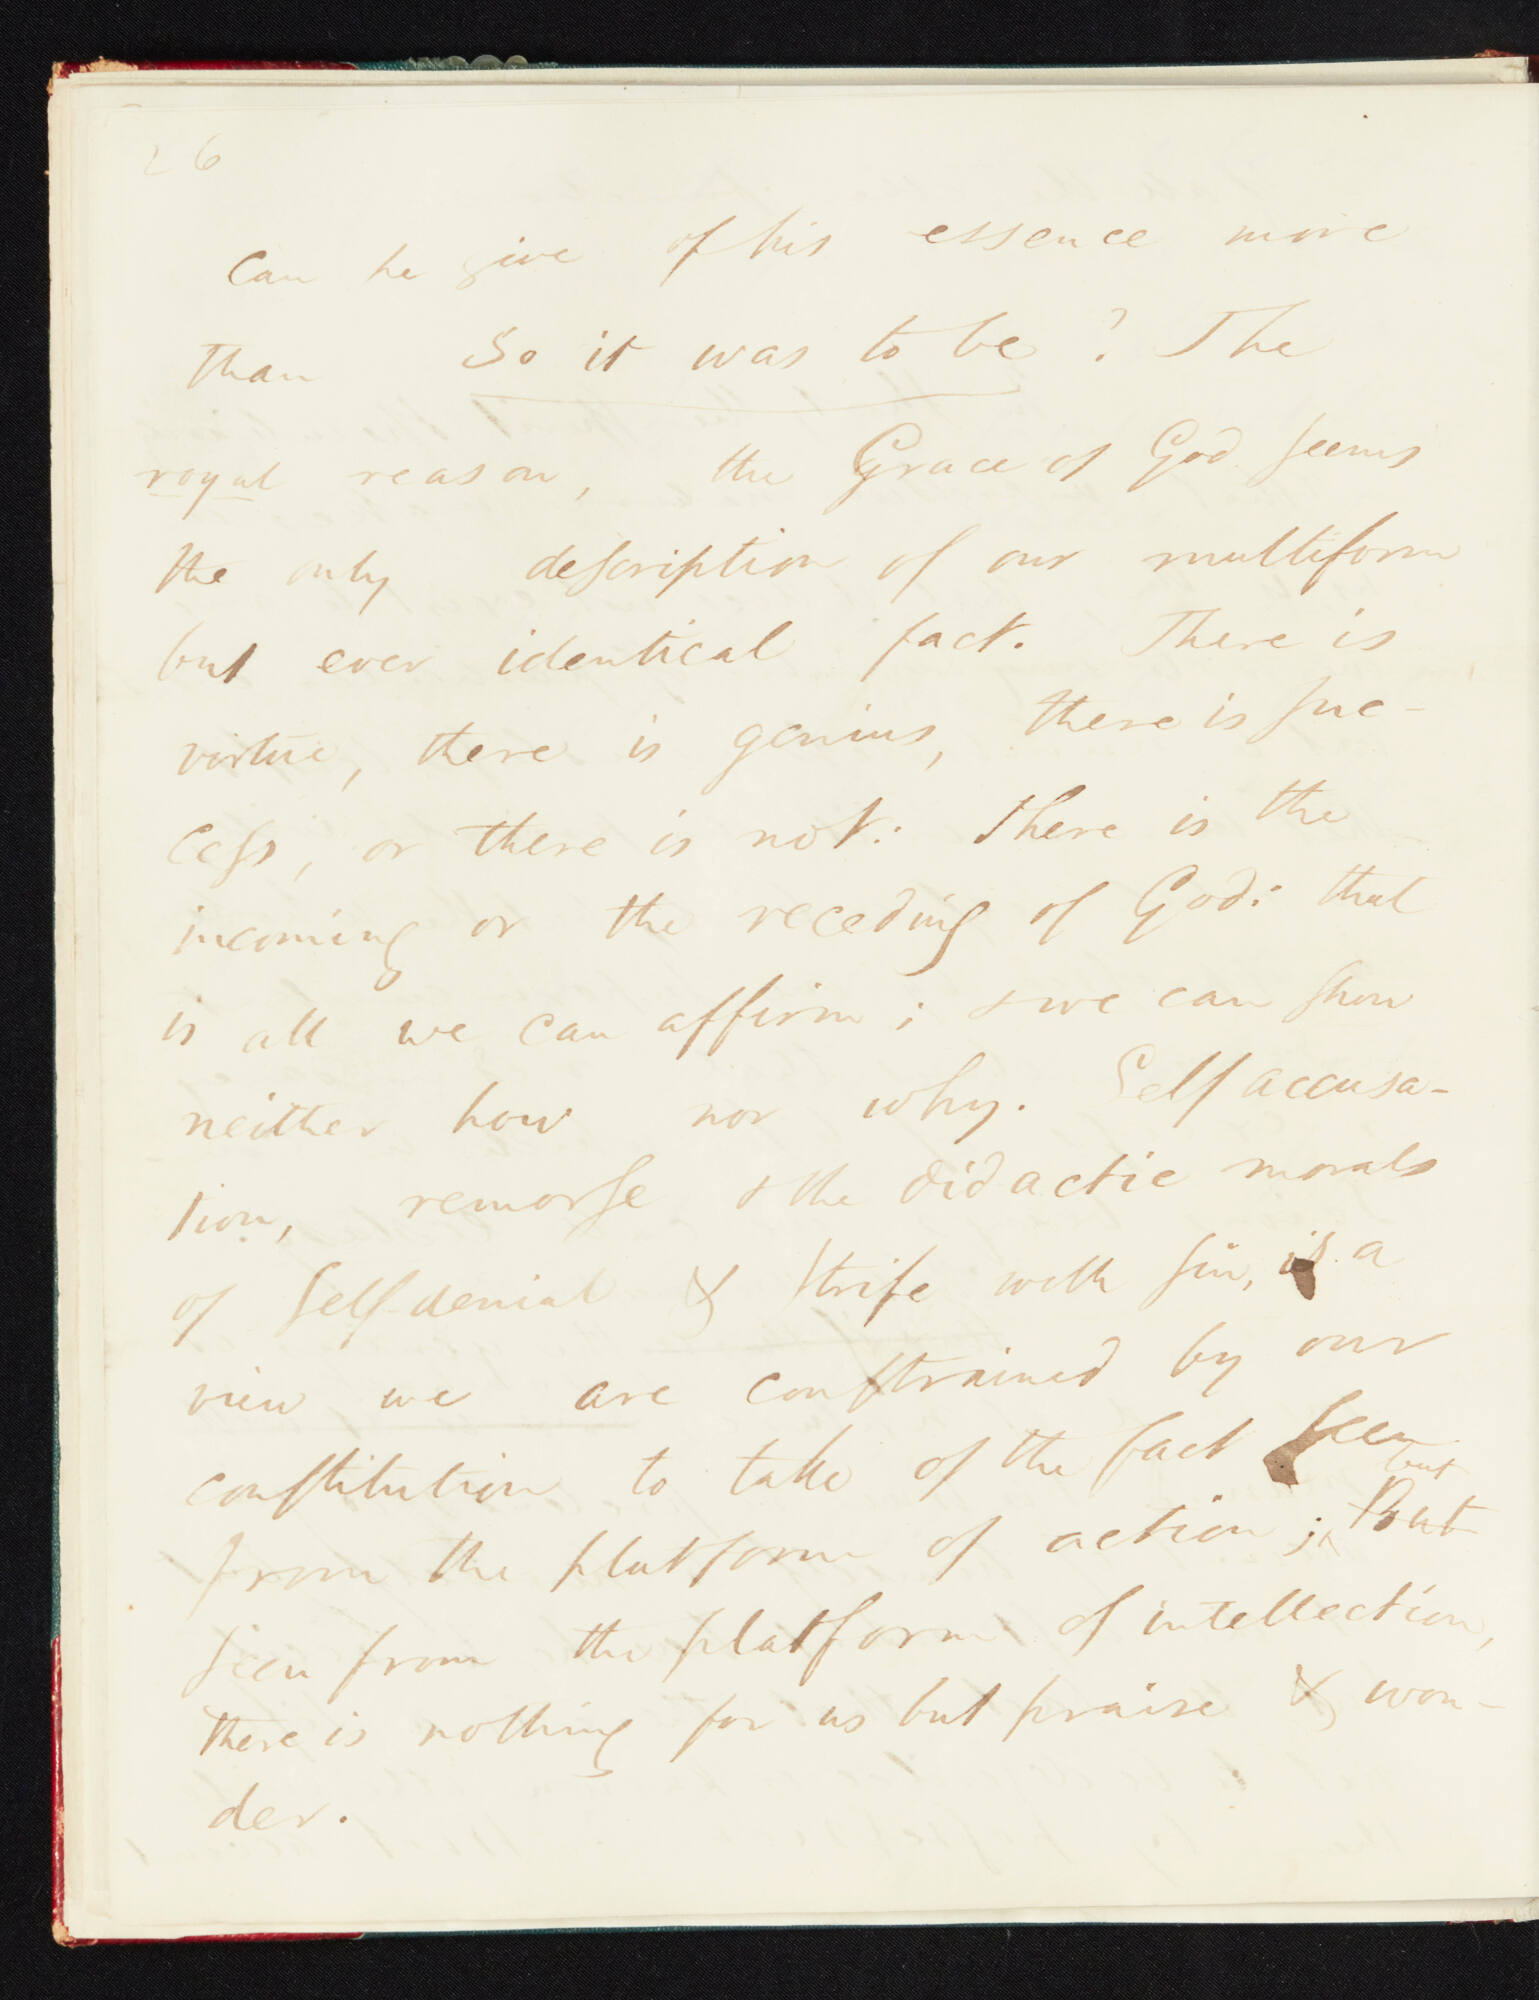 26
can he give of his essence more
than So it was to be? The
royal reason, the Grace of God seems
the only description of our multiform
but ever identical fact. There is
virtue, there is genius, there is suc-
cess, or there is not: There is the
incoming or the receding of God: that
is all we can affirm; & we can show
neither how nor why. Self accusa-
tion, remorse & the didactic morals
of self-denial & strife with sin, is a
view we are constrained by our
constitution to take of the fact seen
but
from the platform of action; But
seen from the platform of intellection,
there is nothing for us but praise & won-
der.